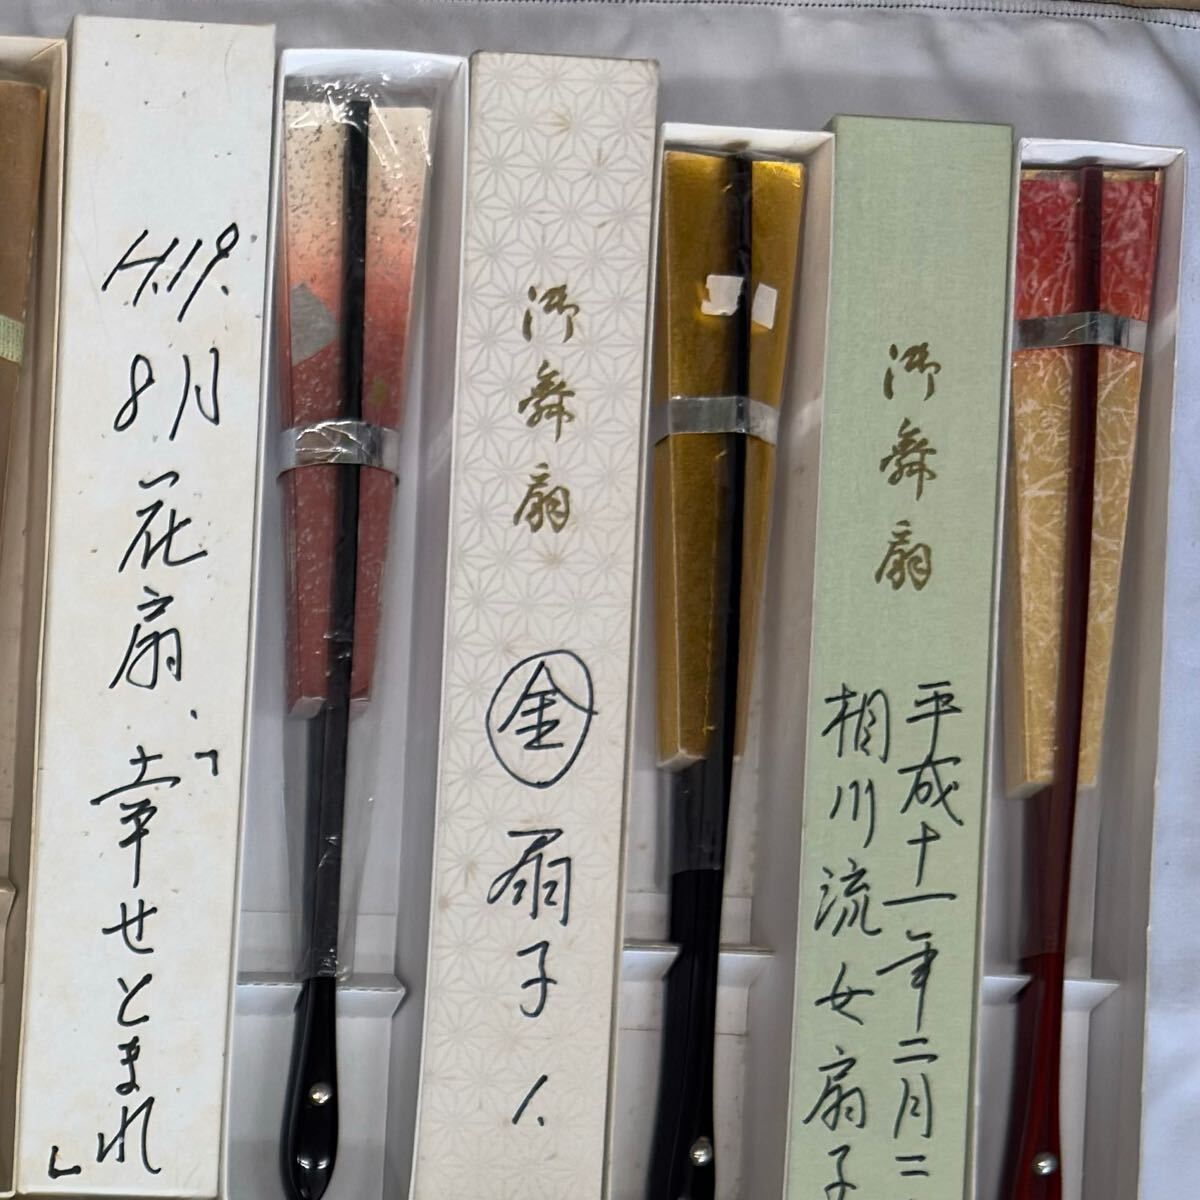 H.19.
8月
花扇
「幸せとまれ」
御舞扇
金
扇子
御舞扇
平成十一年二月二
相川流女扇子